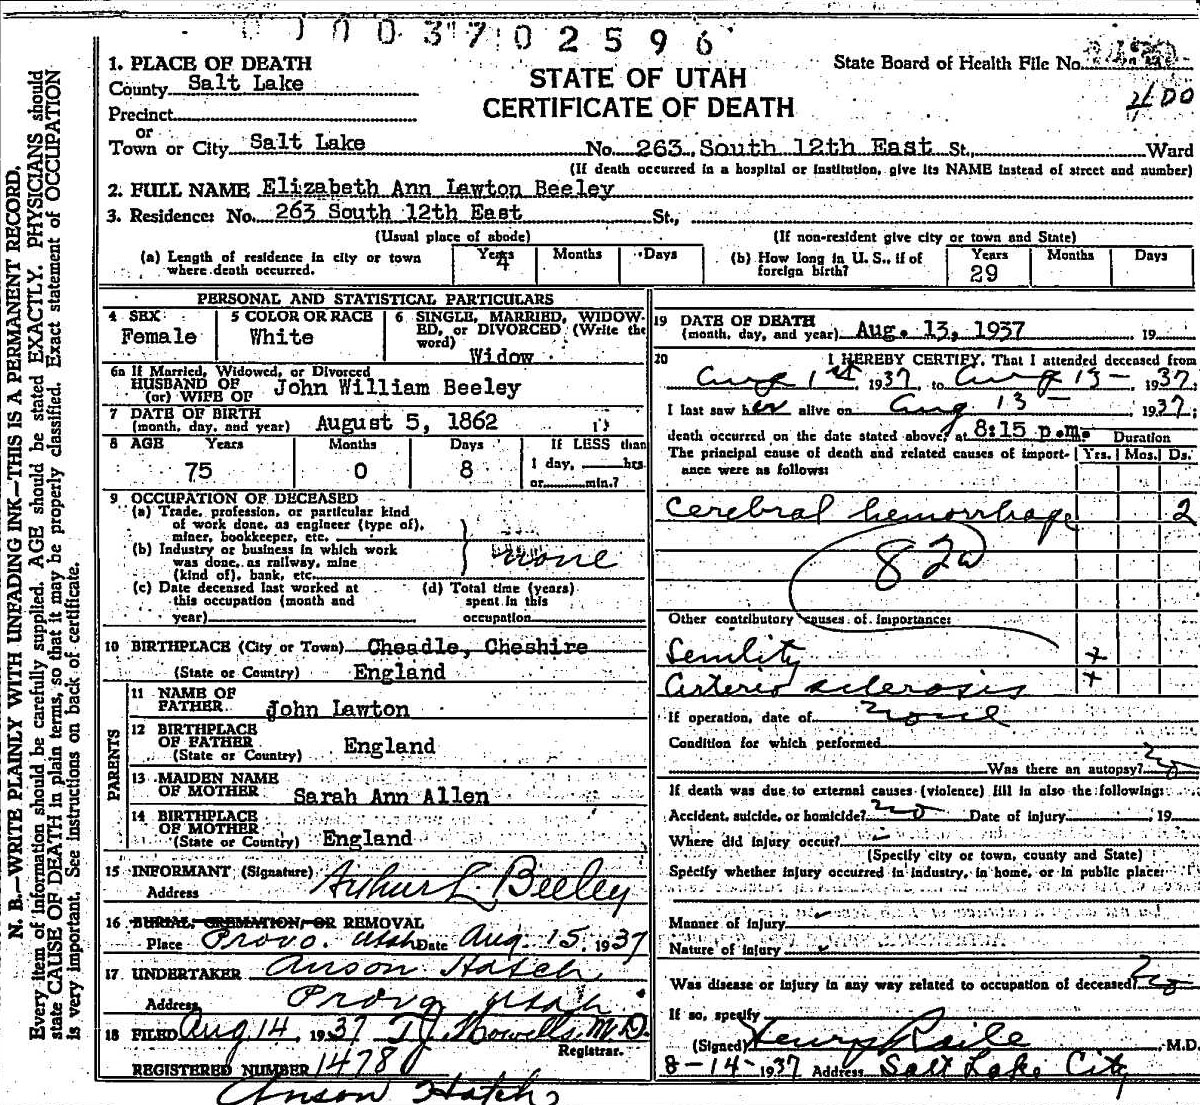 003702596
1. PLACE OF DEATH
County Salt Lake
STATE OF UTAH
CERTIFICATE OF DEATH
State Board of Health File No.
400
Precinct
or
Town or City Salt Lake No. 263 South 12th East St., Ward
(If death occurred in a hospital or institution, give its NAME instead of street and number)
2. FULL NAME Elizabeth Ann Lawton Beeley
3. Residence: No. 263 South 12th East St.,
(Usual place of abode) (If non-resident give city or town and State)
(a) Length of residence in city or town where death occurred. Years 4 Months Days
(b) How long in U. S., if of foreign birth? Years 29 Months Days
PERSONAL AND STATISTICAL PARTICULARS
4 SEX Female
5 COLOR OR RACE White
6 SINGLE, MARRIED, WIDOWED, or DIVORCED (Write the word) Widow
6a If Married, Widowed, or Divorced
HUSBAND OF
(or) WIFE OF John William Beeley
7 DATE OF BIRTH
(month, day, and year) August 5, 1862
8 AGE Years Months Days If LESS than
75 0 8 1 day, hrs.
or min.?
9 OCCUPATION OF DECEASED
(a) Trade, profession, or particular kind
of work done, as engineer (type of),
miner, bookkeeper, etc.
(b) Industry or business in which work
was done, as railway, mine
(kind of), bank, etc.
none
(c) Date deceased last worked at
this occupation (month and
year)
(d) Total time (years)
spent in this
occupation
10 BIRTHPLACE (City or Town) Cheadle, Cheshire
(State or Country) England
PARENTS
11 NAME OF
FATHER John Lawton
12 BIRTHPLACE
OF FATHER England
(State or Country)
13 MAIDEN NAME
OF MOTHER Sarah Ann Allen
14 BIRTHPLACE
OF MOTHER
(State or Country) England
15 INFORMANT (Signature) Arthur L. Beeley
Address
16 BURIAL, CREMATION, OR REMOVAL
Place Provo. Utah Date Aug. 15. 1937
17 UNDERTAKER Anson Hatch
Address Provo Utah
18 FILED Aug 14, 1937 T J Howells, M.D.
Registrar.
REGISTERED NUMBER 1478
Anson Hatch
19 DATE OF DEATH
(month, day, and year) Aug. 13, 1937 19
20 I HEREBY CERTIFY, That I attended deceased from
Aug 1st, 1937, to Aug 13-, 1937.
I last saw her alive on Aug 13-, 1937.
death occurred on the date stated above, at 8:15 p.m. Duration
The principal cause of death and related causes of importance were as follows: Yrs. Mos. Ds.
Cerebral hemorrhage 2
82a
Other contributory causes of importance:
Senility +
Arterio sclerosis +
If operation, date of None
Condition for which performed
Was there an autopsy? No
If death was due to external causes (violence) fill in also the following:
Accident, suicide, or homicide? No Date of injury, 19
Where did injury occur?
(Specify city or town, county and State)
Specify whether injury occurred in industry, in home, or in public place:
Manner of injury
Nature of injury
Was disease or injury in any way related to occupation of deceased? No
If so, specify
(Signed) Henry Raile, M.D.
8-14-1937 Address Salt Lake City
N. B.—WRITE PLAINLY WITH UNFADING INK—THIS IS A PERMANENT RECORD.
Every item of information should be carefully supplied. AGE should be stated EXACTLY. PHYSICIANS should
state CAUSE OF DEATH in plain terms, so that it may be properly classified. Exact statement of OCCUPATION
is very important. See instructions on back of certificate.